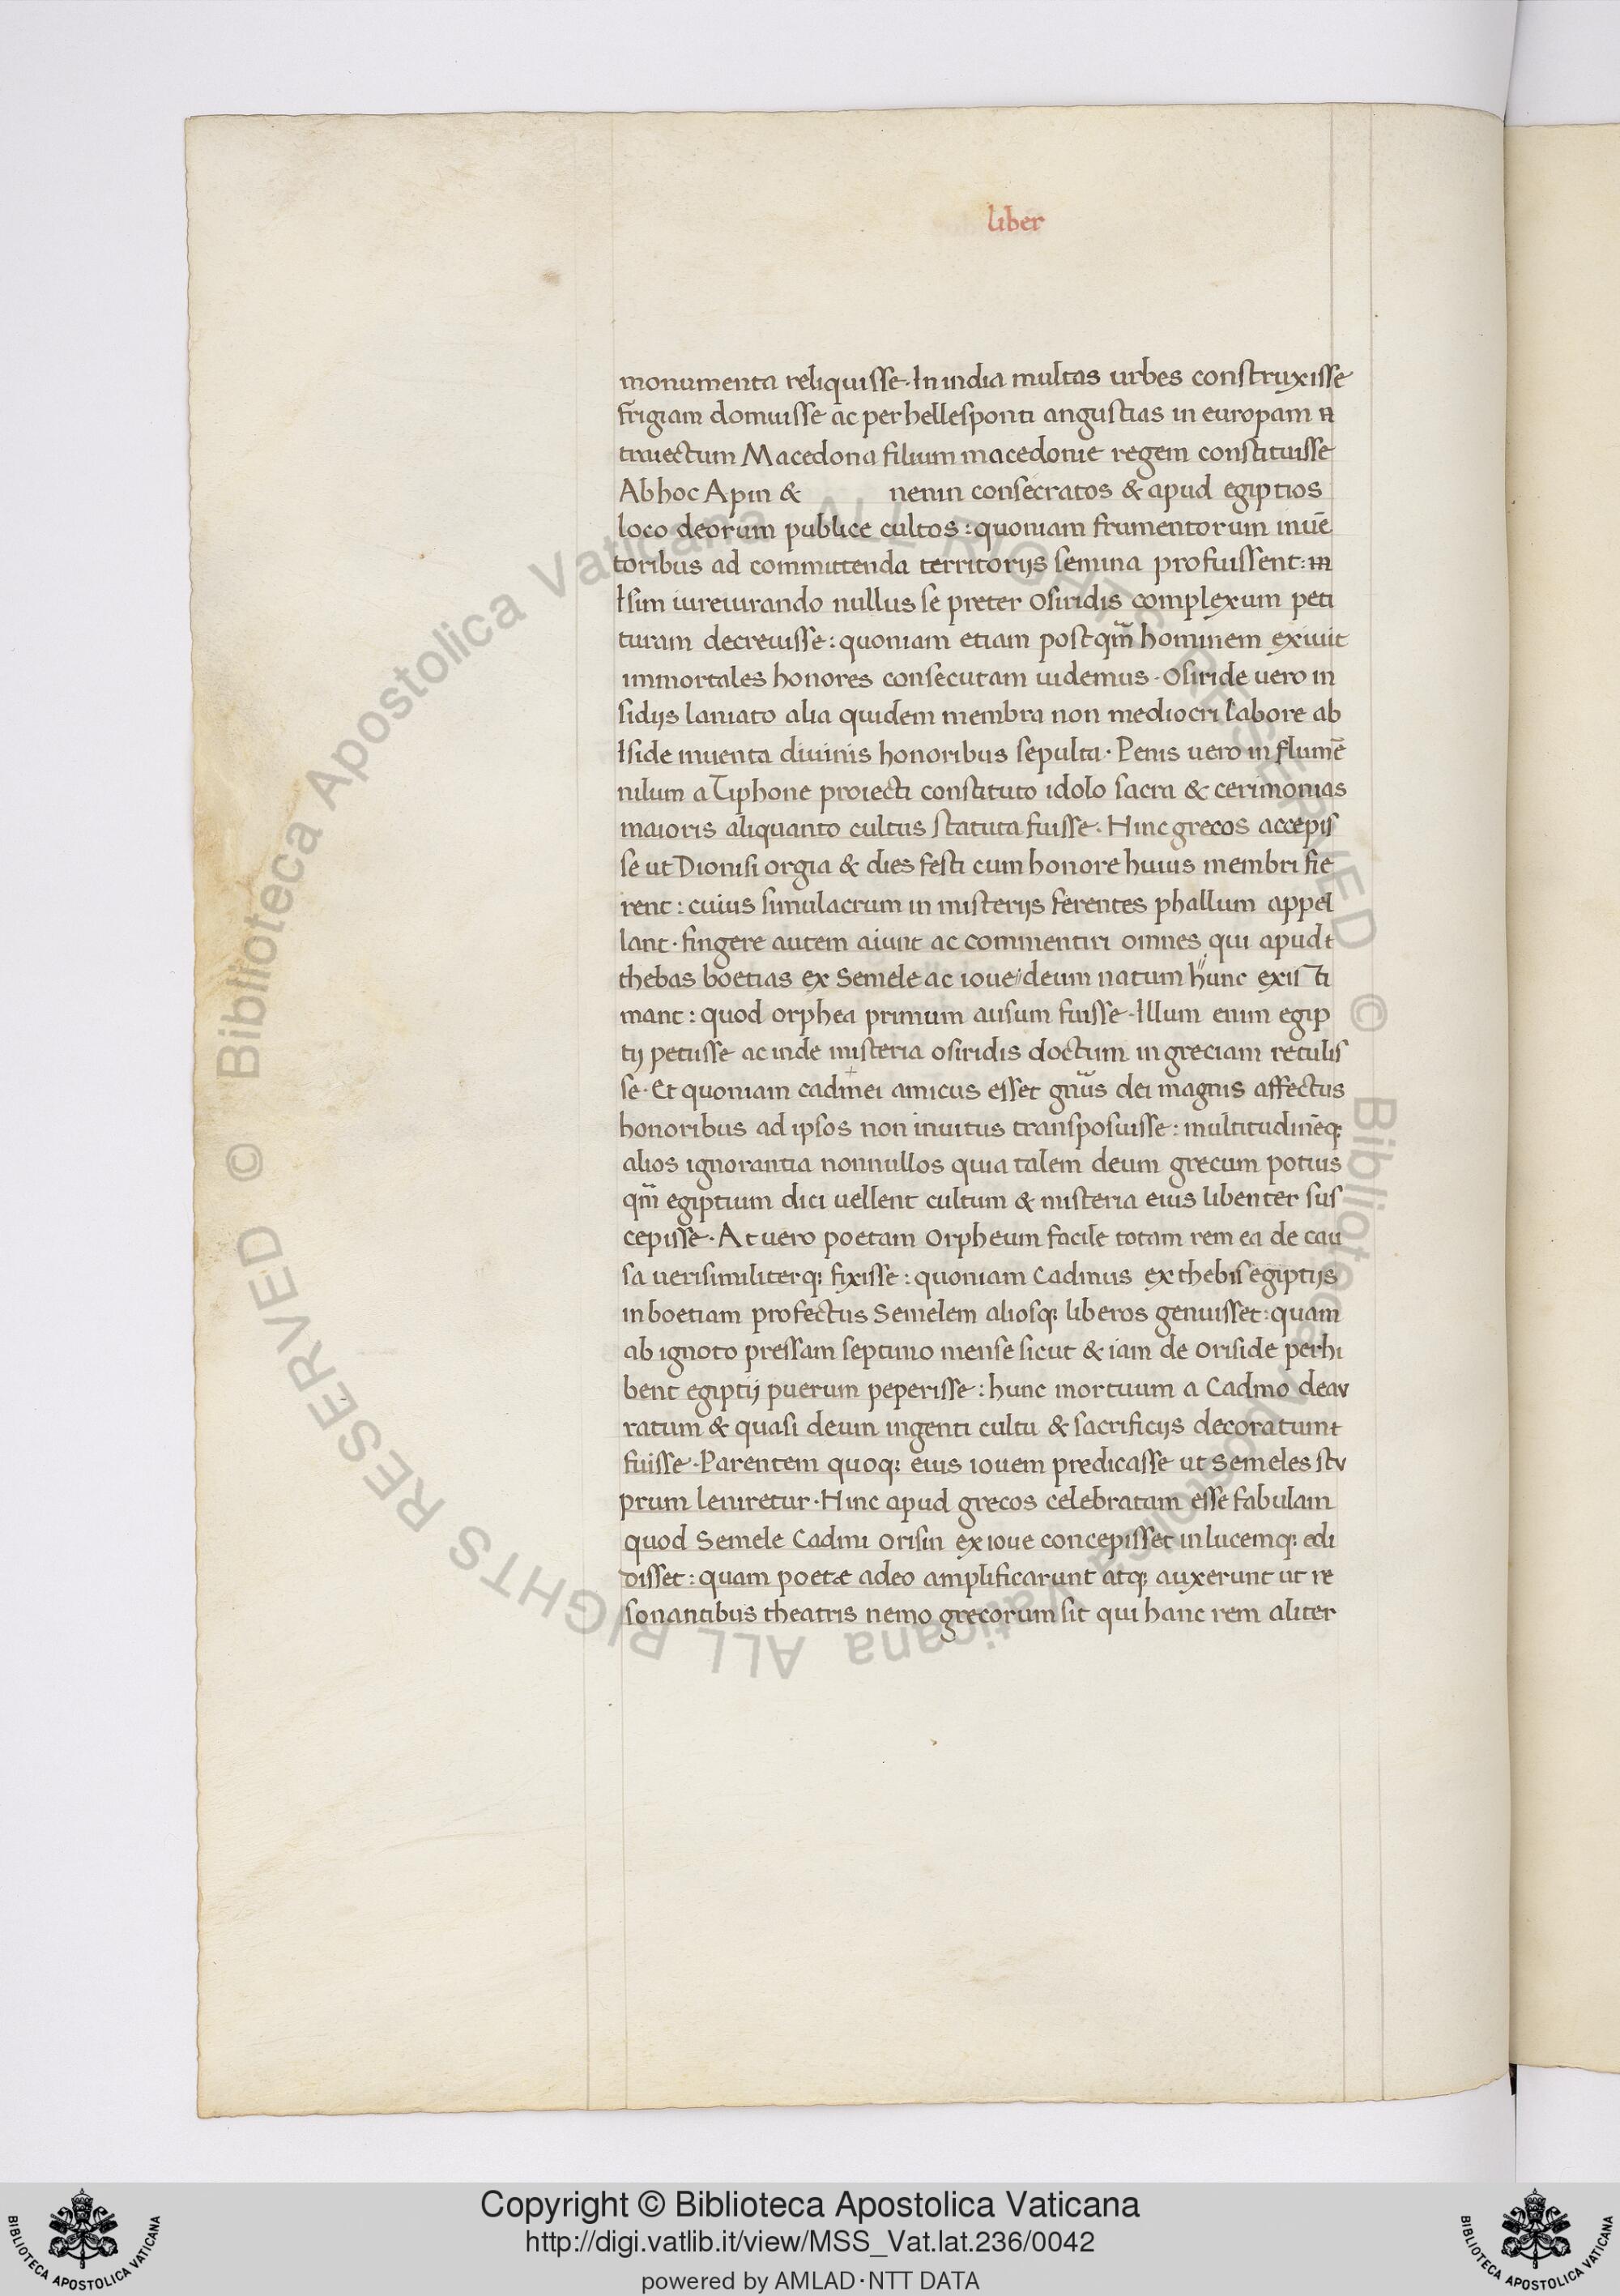 liber
monumenta reliquisse · In india multas urbes construxisse
frigiam domuisse ac per hellesponti angustias in europam
traiectum Macedona filium macedonie regem constituisse
Ab hoc Apin & nenin consecratos & apud egiptios
loco deorum publice cultos : quoniam frumentorum inuē
toribus ad committenda territorijs semina profuissent :
Isim iureiurando nullus se preter osiridis complexum peti
turam decreuisse : quoniam etiam postqm̄ hominem exiuit
immortales honores consecutam uidemus · Osiride uero in
sidijs laniato alia quidem membra non mediocri labore ab
Iside inuenta diuinis honoribus sepulta · Penis uero in flumē
nilum a Tiphone proiecti constituto idolo sacra & cerimonias
maioris aliquanto cultus statuta fuisse · Hinc grecos accepis
se ut Dionisi orgia & dies festi cum honore huius membri fie
rent : cuius simulacrum in misterijs ferentes phallum appel
lant · fingere autem aiunt ac commentiri omnes qui apud
thebas boetias ex Semele ac ioue deum natum hunc existi
mant : quod orphea primum ausum fuisse · Illum enim egip
tij petiisse ac inde misteria osiridis doctum in greciam retulis
se · Et quoniam cadmei amicus esset gnūs dei magnis affectus
honoribus ad ipsos non inuitus transposuisse : multitudinēq;
alios ignorantia nonnullos quia talem deum grecum potius
qm̄ egiptium dici uellent cultum & misteria eius libenter sus
cepisse · At uero poetam Orpheum facile totam rem ea de cau
sa uerisimiliterq; fixisse : quoniam Cadmus ex thebis egiptijs
in boetiam profectus Semelem aliosq; liberos genuisset : quam
ab ignoto pressam septimo mense sicut & iam de Oriside perhi
bent egiptij puerum peperisse : hunc mortuum a Cadmo deau
ratum & quasi deum ingenti cultu & sacrificijs decoratum
fuisse · Parentem quoq; eius iouem predicasse ut Semeles stu
prum leniretur · Hinc apud grecos celebratam esse fabulam
quod Semele Cadmi Orisin ex ioue concepisset in lucemq; edi
disset : quam poetæ adeo amplificarunt atq; auxerunt ut re
sonantibus theatris nemo grecorum sit qui hanc rem aliter
© Biblioteca Apostolica Vaticana ALL RIGHTS RESERVED
© Biblioteca Apostolica Vaticana ALL RIGHTS RESERVED
Copyright © Biblioteca Apostolica Vaticana
http://digi.vatlib.it/view/MSS_Vat.lat.236/0042
powered by AMLAD·NTT DATA
BIBLIOTECA APOSTOLICA VATICANA
BIBLIOTECA APOSTOLICA VATICANA